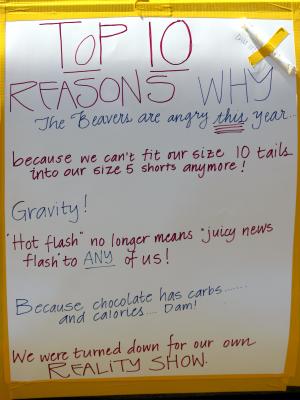 TOP 10
REASONS WHY
The Beavers are angry this year...
because we can't fit our size 10 tails
into our size 5 shorts anymore!
Gravity!
"Hot flash" no longer means "juicy news
flash" to ANY of us!
Because, chocolate has carbs.......
and calories.... Dam!
We were turned down for our own
REALITY SHOW.